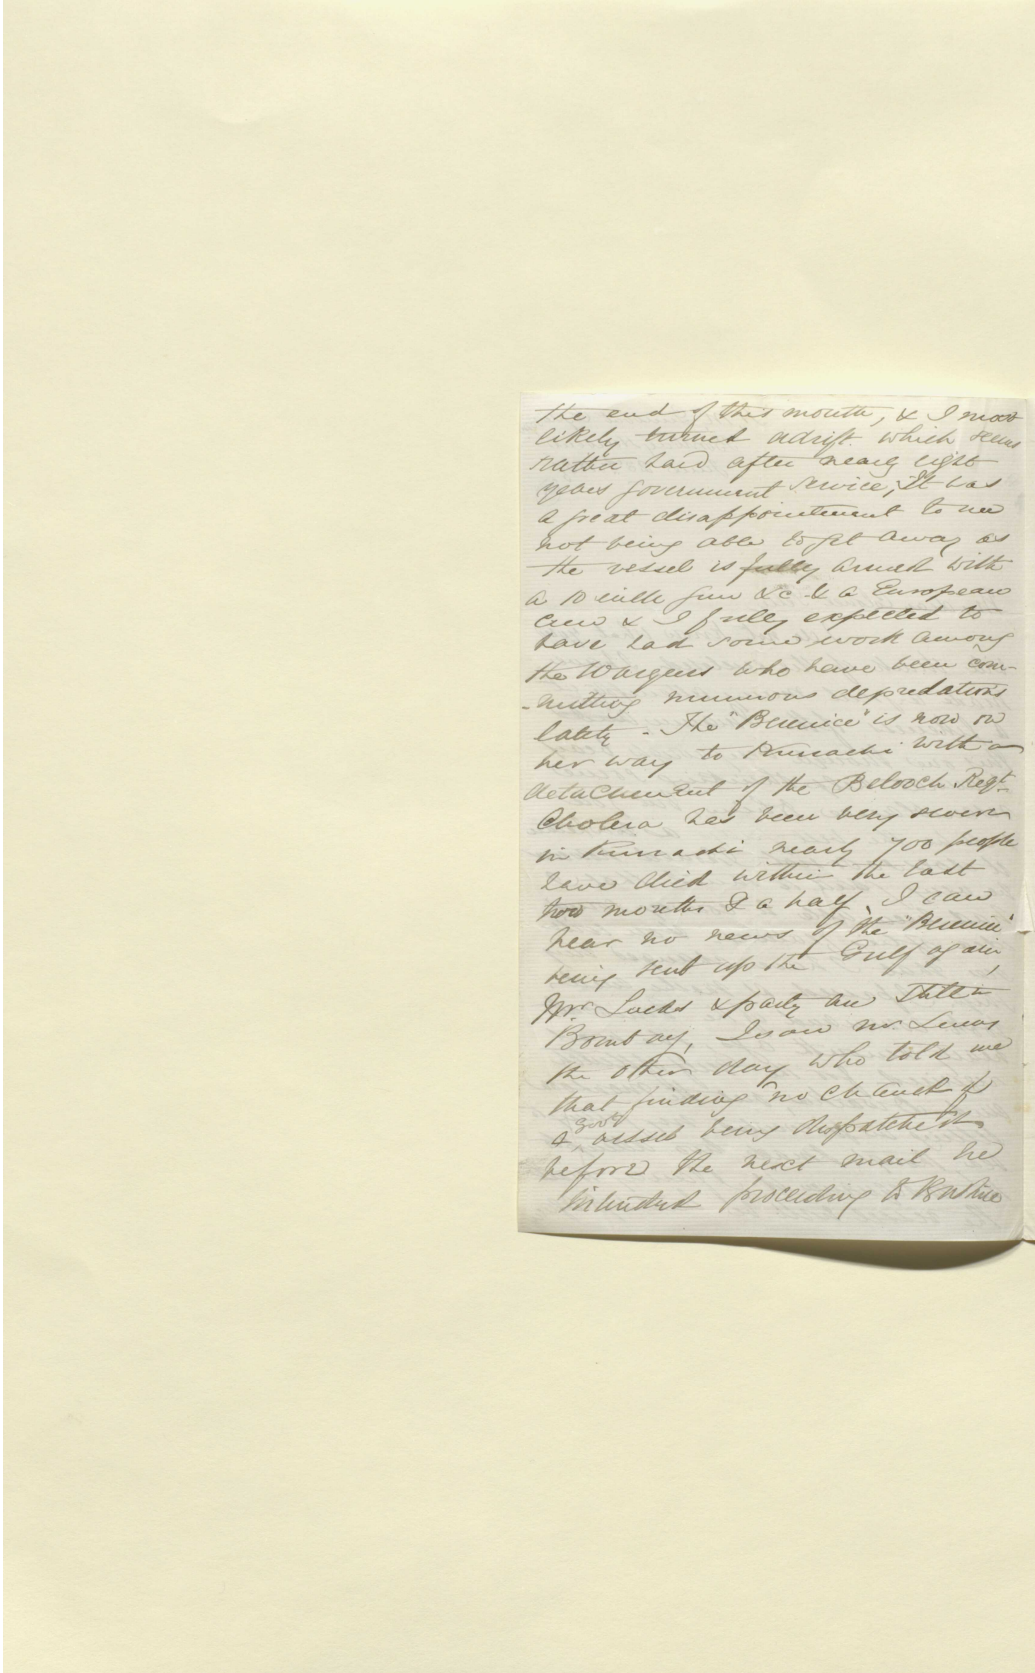 the end of this month, & I most
likely turned adrift which seems
rather hard after nearly eight
years government service; It was
a great disappointment to me
not being able to get away as
the vessel is fully armed with
a 10 inch gun &c & a European
crew & I fully expected to
have had some work among
the Wagers who have been com-
-mitting numerous depredations
lately - The "Berenice" is now on
her way to Kurrachi with a
detachment of the Belooch Regt.
Cholera has been very severe
in Kurrachi nearly 700 people
have died within the last
two months & a half, I can
hear no news of the "Berenice"
being sent up the Gulf again,
Mr. Lucas & party are still in
Bombay, I saw Mr. Lucas
the other day who told me
that finding no chance of
a good vessel being dispatched
before the next mail he
intended proceeding to Bushire